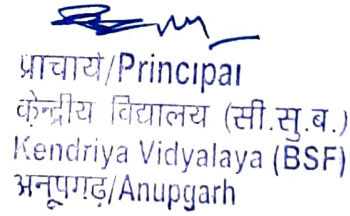 प्राचार्य/Principal
केन्द्रीय विद्यालय (सी.सु.ब.)
Kendriya Vidyalaya (BSF)
अनूपगढ़/Anupgarh